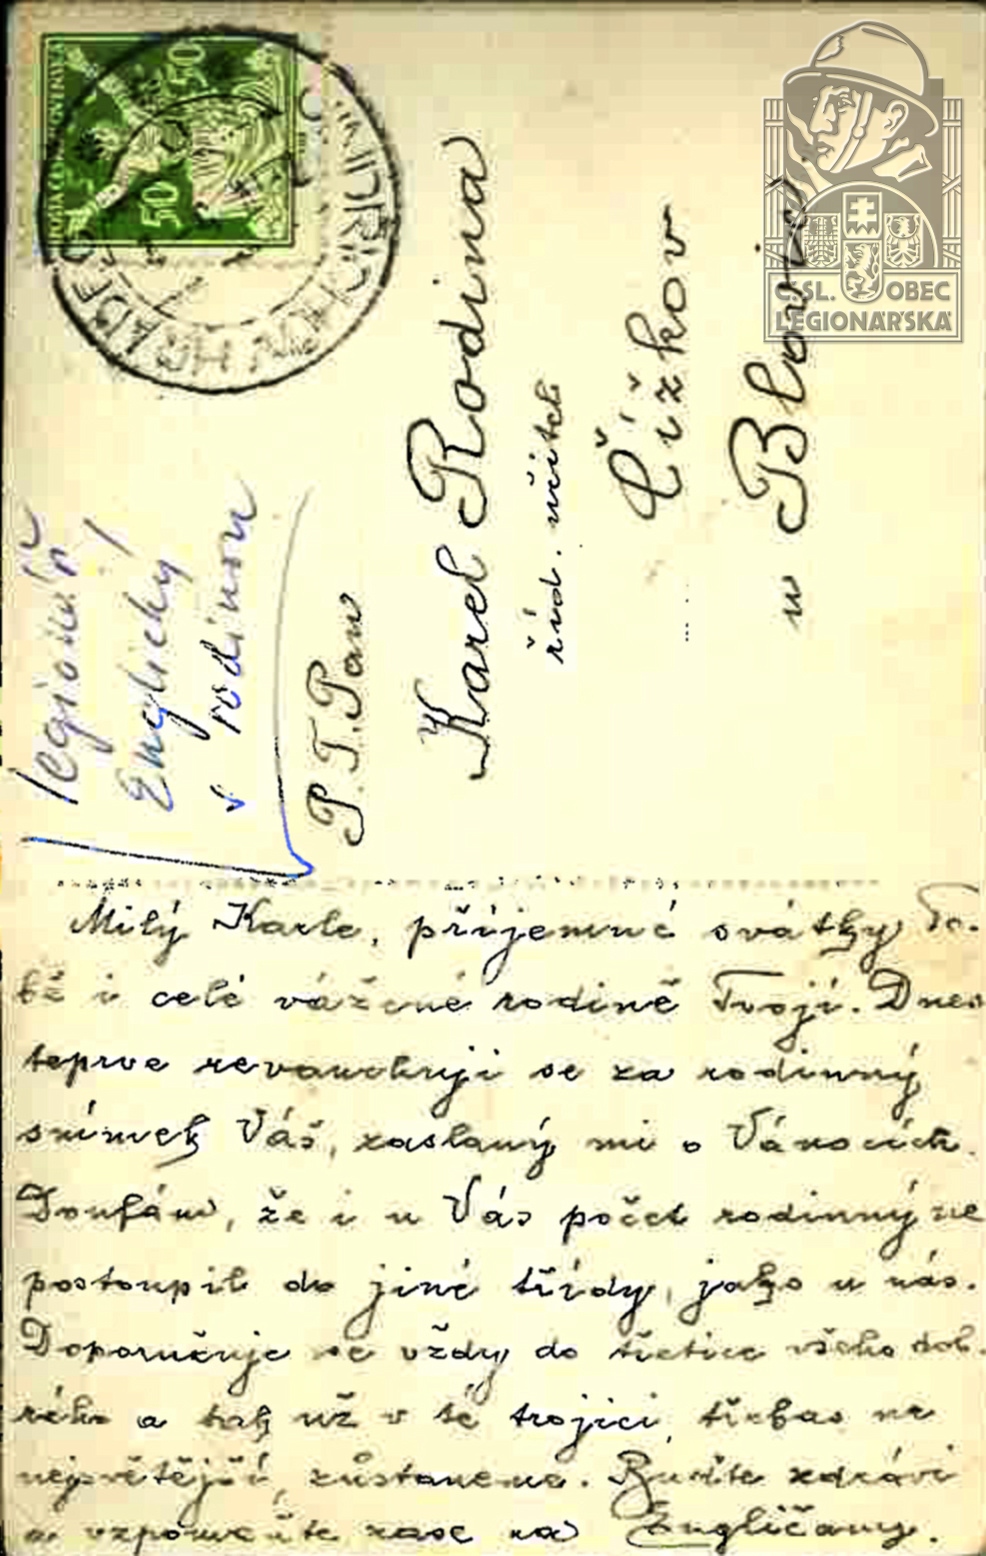 50
50
JINDŘICHŮV HRADEC
ČSL. OBEC
LEGIONÁŘSKÁ
legionář
Englický
s rodinou
P. T. Pan
Karel Rodina
říd. učitel
Čížkov
u Blovic
Milý Karle, příjemné svátky To-
bě i celé vážené rodině Tvojí. Dnes
teprve revanchuji se za rodinný
snímek Váš, zaslaný mi o Vánocích.
Doufám, že i u Vás počet rodinný ne
postoupil do jiné třídy, jako u nás.
Doporučuje se vždy do třetice všeho dob-
rého a tak už v té trojici, třebas ne
nejsvětější, zůstaneme. Buďte zdrávi
a vzpomeňte zase na Engličany.